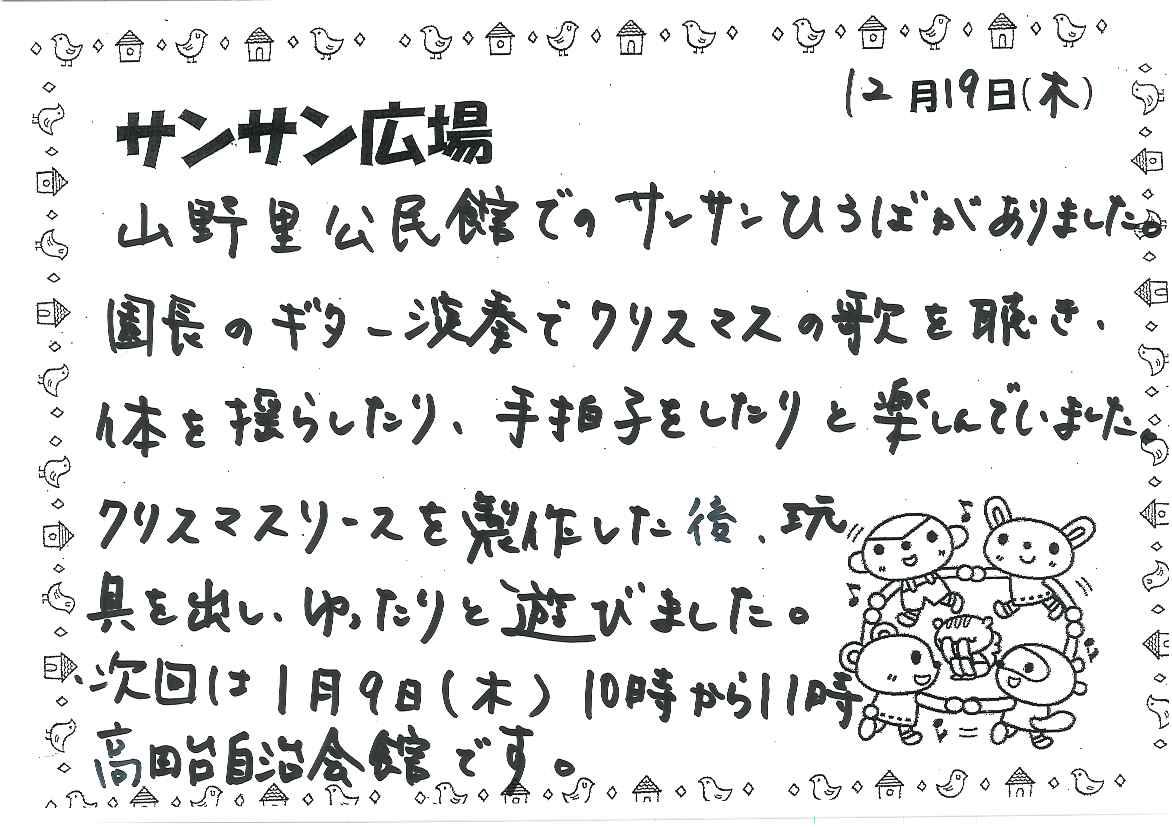 12月19日(木)
サンサン広場
山野里公民館でのサンサンひろばがありました。
園長のギター演奏でクリスマスの歌を聴き、
体を揺らしたり、手拍子をしたりと楽しんでいました。
クリスマスリースを製作した後、玩
具を出し、ゆったりと遊びました。
次回は1月9日(木)10時から11時
高田台自治会館です。